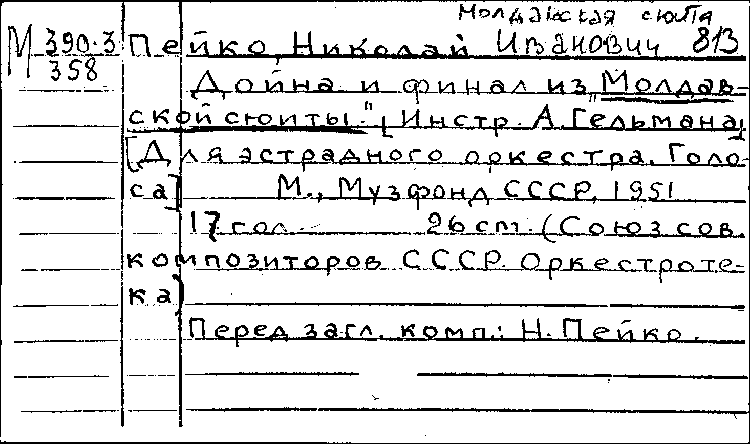 Молдавская сюита
М 390-3 Пейко, Николай Иванович 813
358
Дойна и финал из "Молдав-
ской сюиты." [Инстр. А. Гельмана]
[Для эстрадного оркестра. Голо-
са] М., Музфонд СССР, 1951
17 гол. 26 cm. (Союз сов.
композиторов СССР. Оркестроте-
ка)
Перед загл. комп.: Н. Пейко.